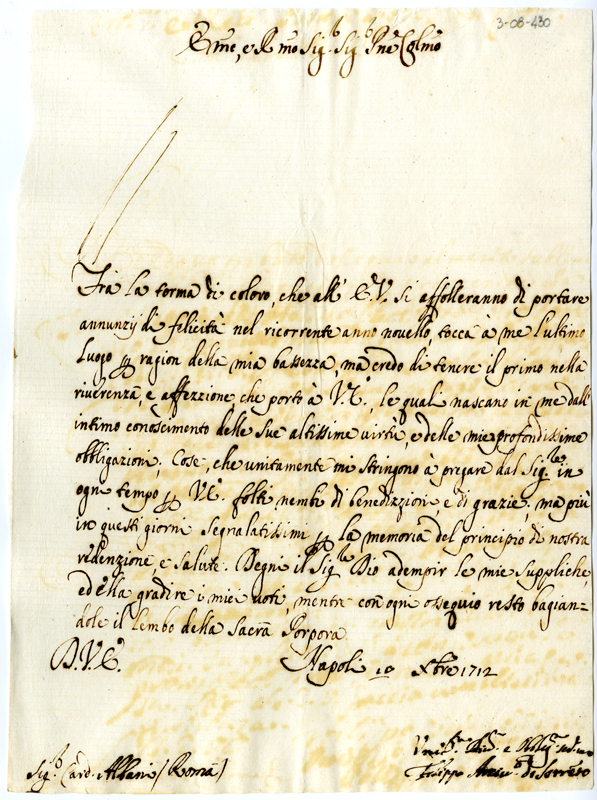 3-08-430
Emo, e Rmo Sig.r Sig.r Pne Colmo
Trà la torma di coloro, che all' E.V. si affolleranno di portare
annunzij di felicità nel ricorrente anno novello, tocca à me l'ultimo
Luogo p ragion della mia bassezza, ma credo di tenere il primo nella
riverenza, e affezzione che porto à V.E., le quali nascano in me dall'
intimo conoscimento delle Sue altissime virtù, e delle mie profondissime
obbligazioni; Cose, che unitamente mi stringono à pregare dal Sig.re in
ogni tempo p V.E. folti nembi di benedizzioni e di grazie; ma più
in questi giorni segnalatissimi p la memoria del principio di nostra
redenzione, e salute. Degni il Sig.re Dio adempir le mie suppliche,
ed ella gradire i miei voti, mentre con ogni ossequio resto bagian=
dole il Lembo della Sacra Porpora
D.V.E. Napoli 10 Xbre 1712
Filippo Arciv.o di Sorrento
Sig.r Card. Albani (Roma)